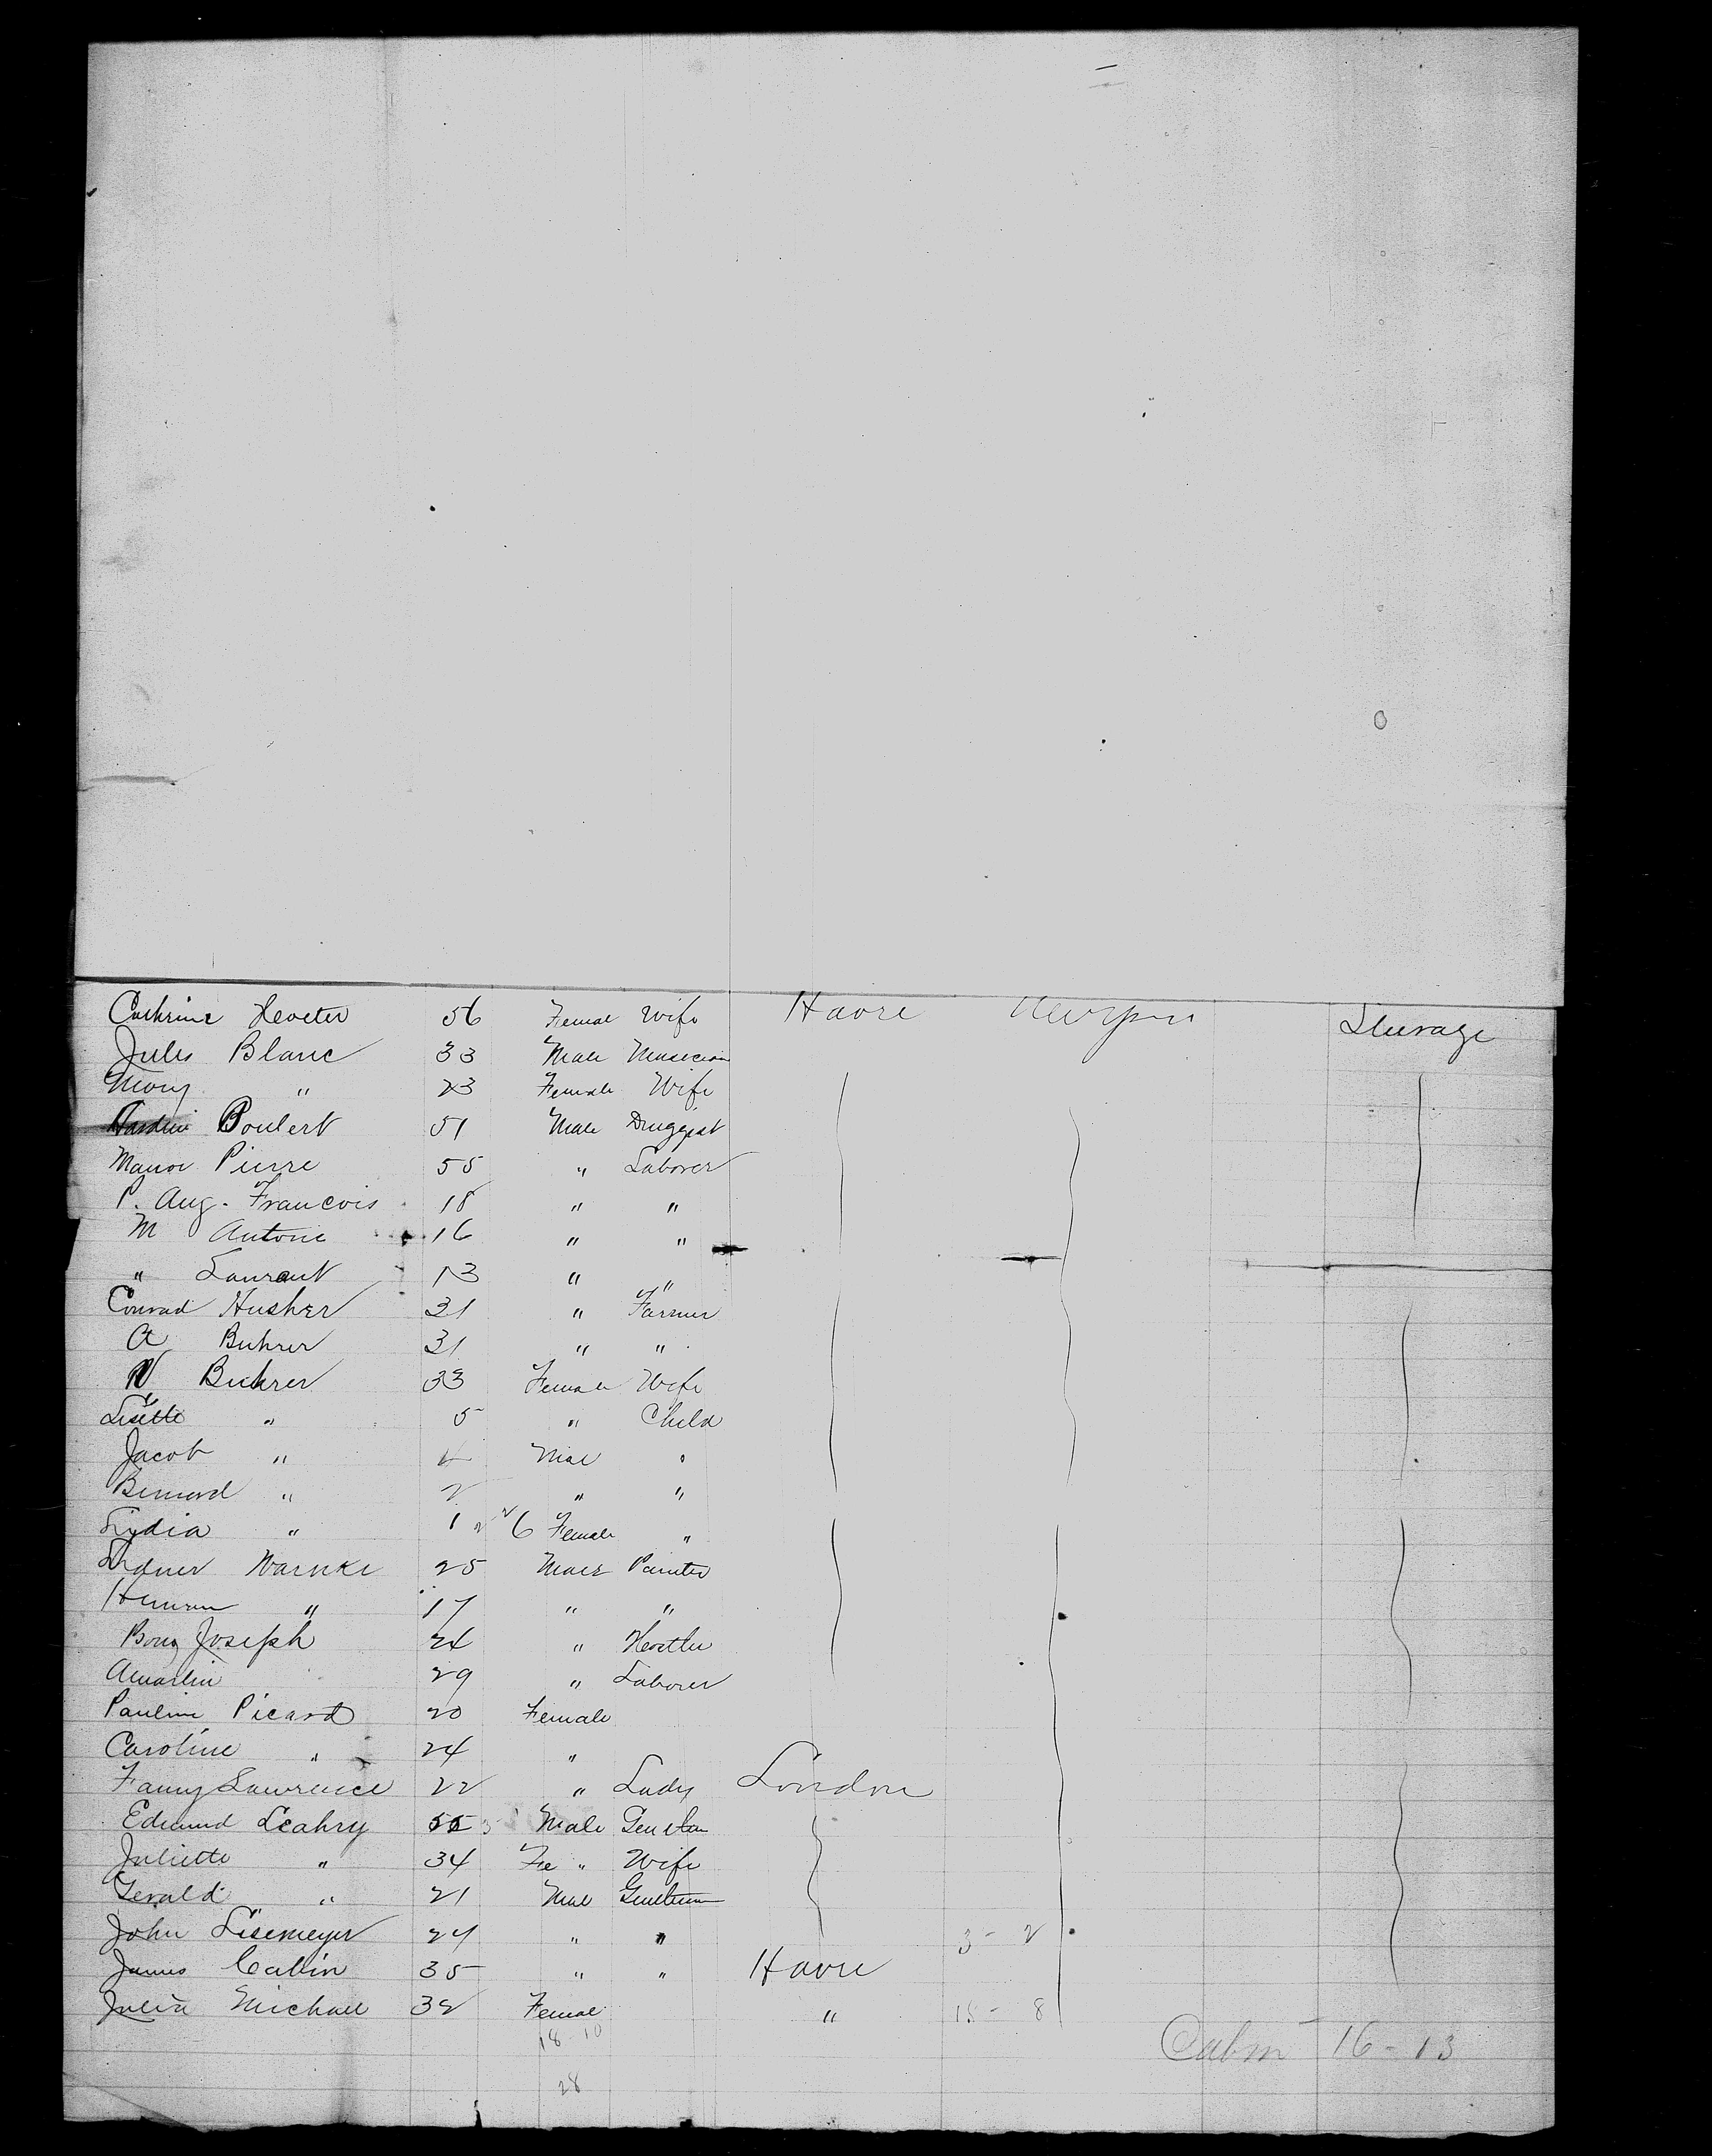 Cathrine Heveter 56 Femal Wife Havre Steerage
Jules Blanc 33 Male Musician
Mary " 23 Female Wife
Boulert 51 Male Druggist
Pierre 55 " Laborer
P. Aug. Francois 18 " "
M Antoine 16 " "
" Laurent 13 " "
Conrad Husher 31 " Farmer
A Buhrer 31 " "
N Buhrer 33 Female Wife
Lisette " 5 " Child
Jacob " 4 Male "
Bernard " 2 " "
Lydia " 1 6 Female "
Warnke 25 Male Painter
Herman " 17 " "
Bour Joseph 24 " Hostler
Amarlin 29 " Laborer
Pauline Picard 20 Female
Caroline " 24 "
Fanny Lawrence 22 " Lady London
Edmund Leahry 55 Male
Juliette " 34 Fe " Wife
Gerald " 21 Mal Gentleman
John Lisemeyer 24 " " 3 - 2
James Catlin 35 " " Havre
Julia Michael 32 Female " 15 - 8
18 - 10 Cabin 16 - 13
28